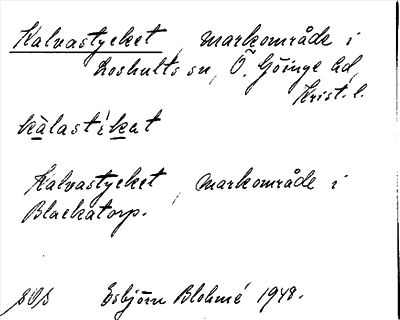 Kalvastycket, markområde i
Loshults sn, Ö. Göinge hd,
Krist. l.
kàlastíkat
Kalvastycket, markområde i
Blackatorp.
Esbjörn Blohmé 1948.